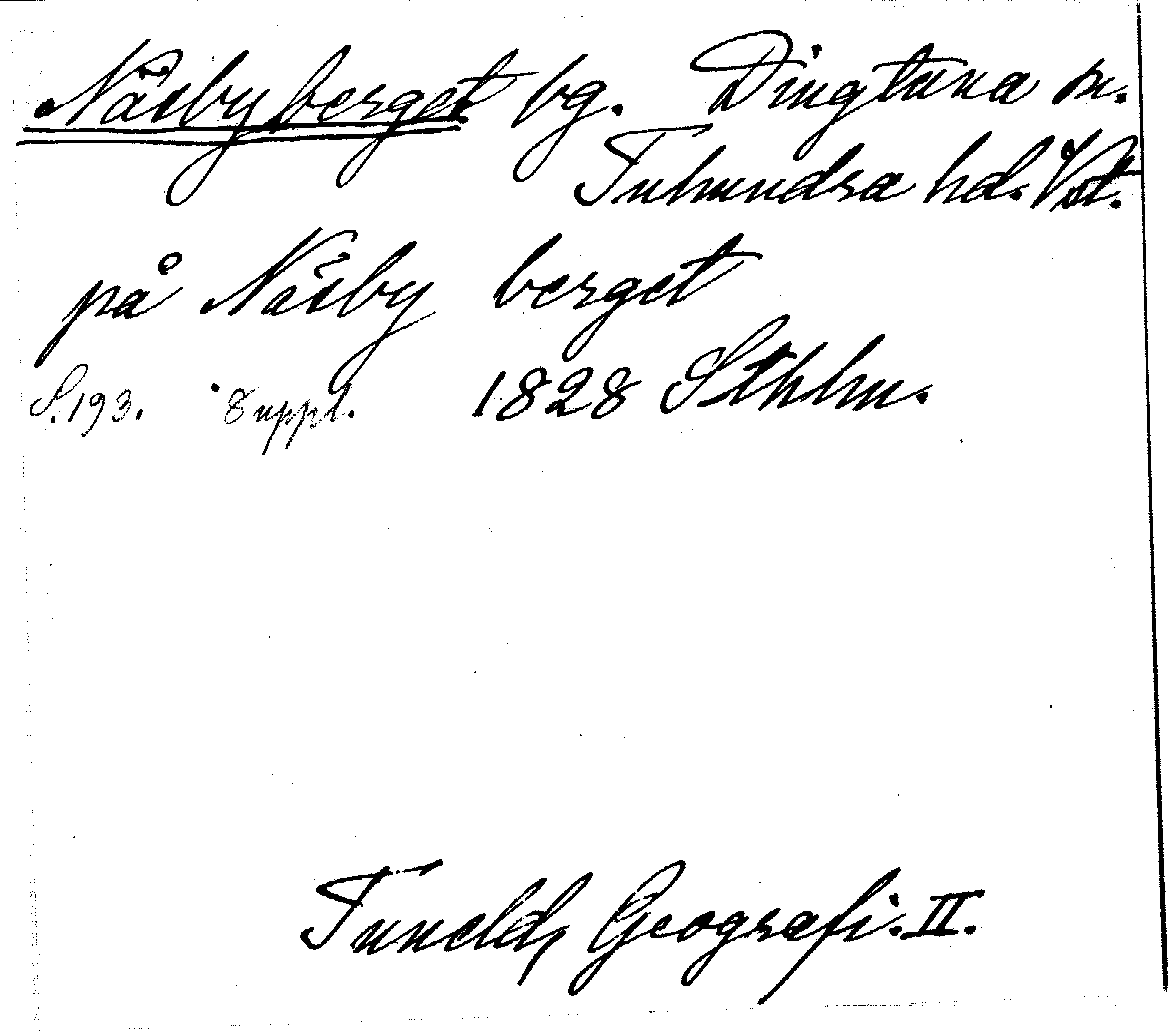 Näsbyberget bg. Dingtuna sn.
Tuhundra hd. Vstm.
på Näsby berget
S. 193. Suppl. 1828 Sthlm.
Tuneld, Geografi. II.